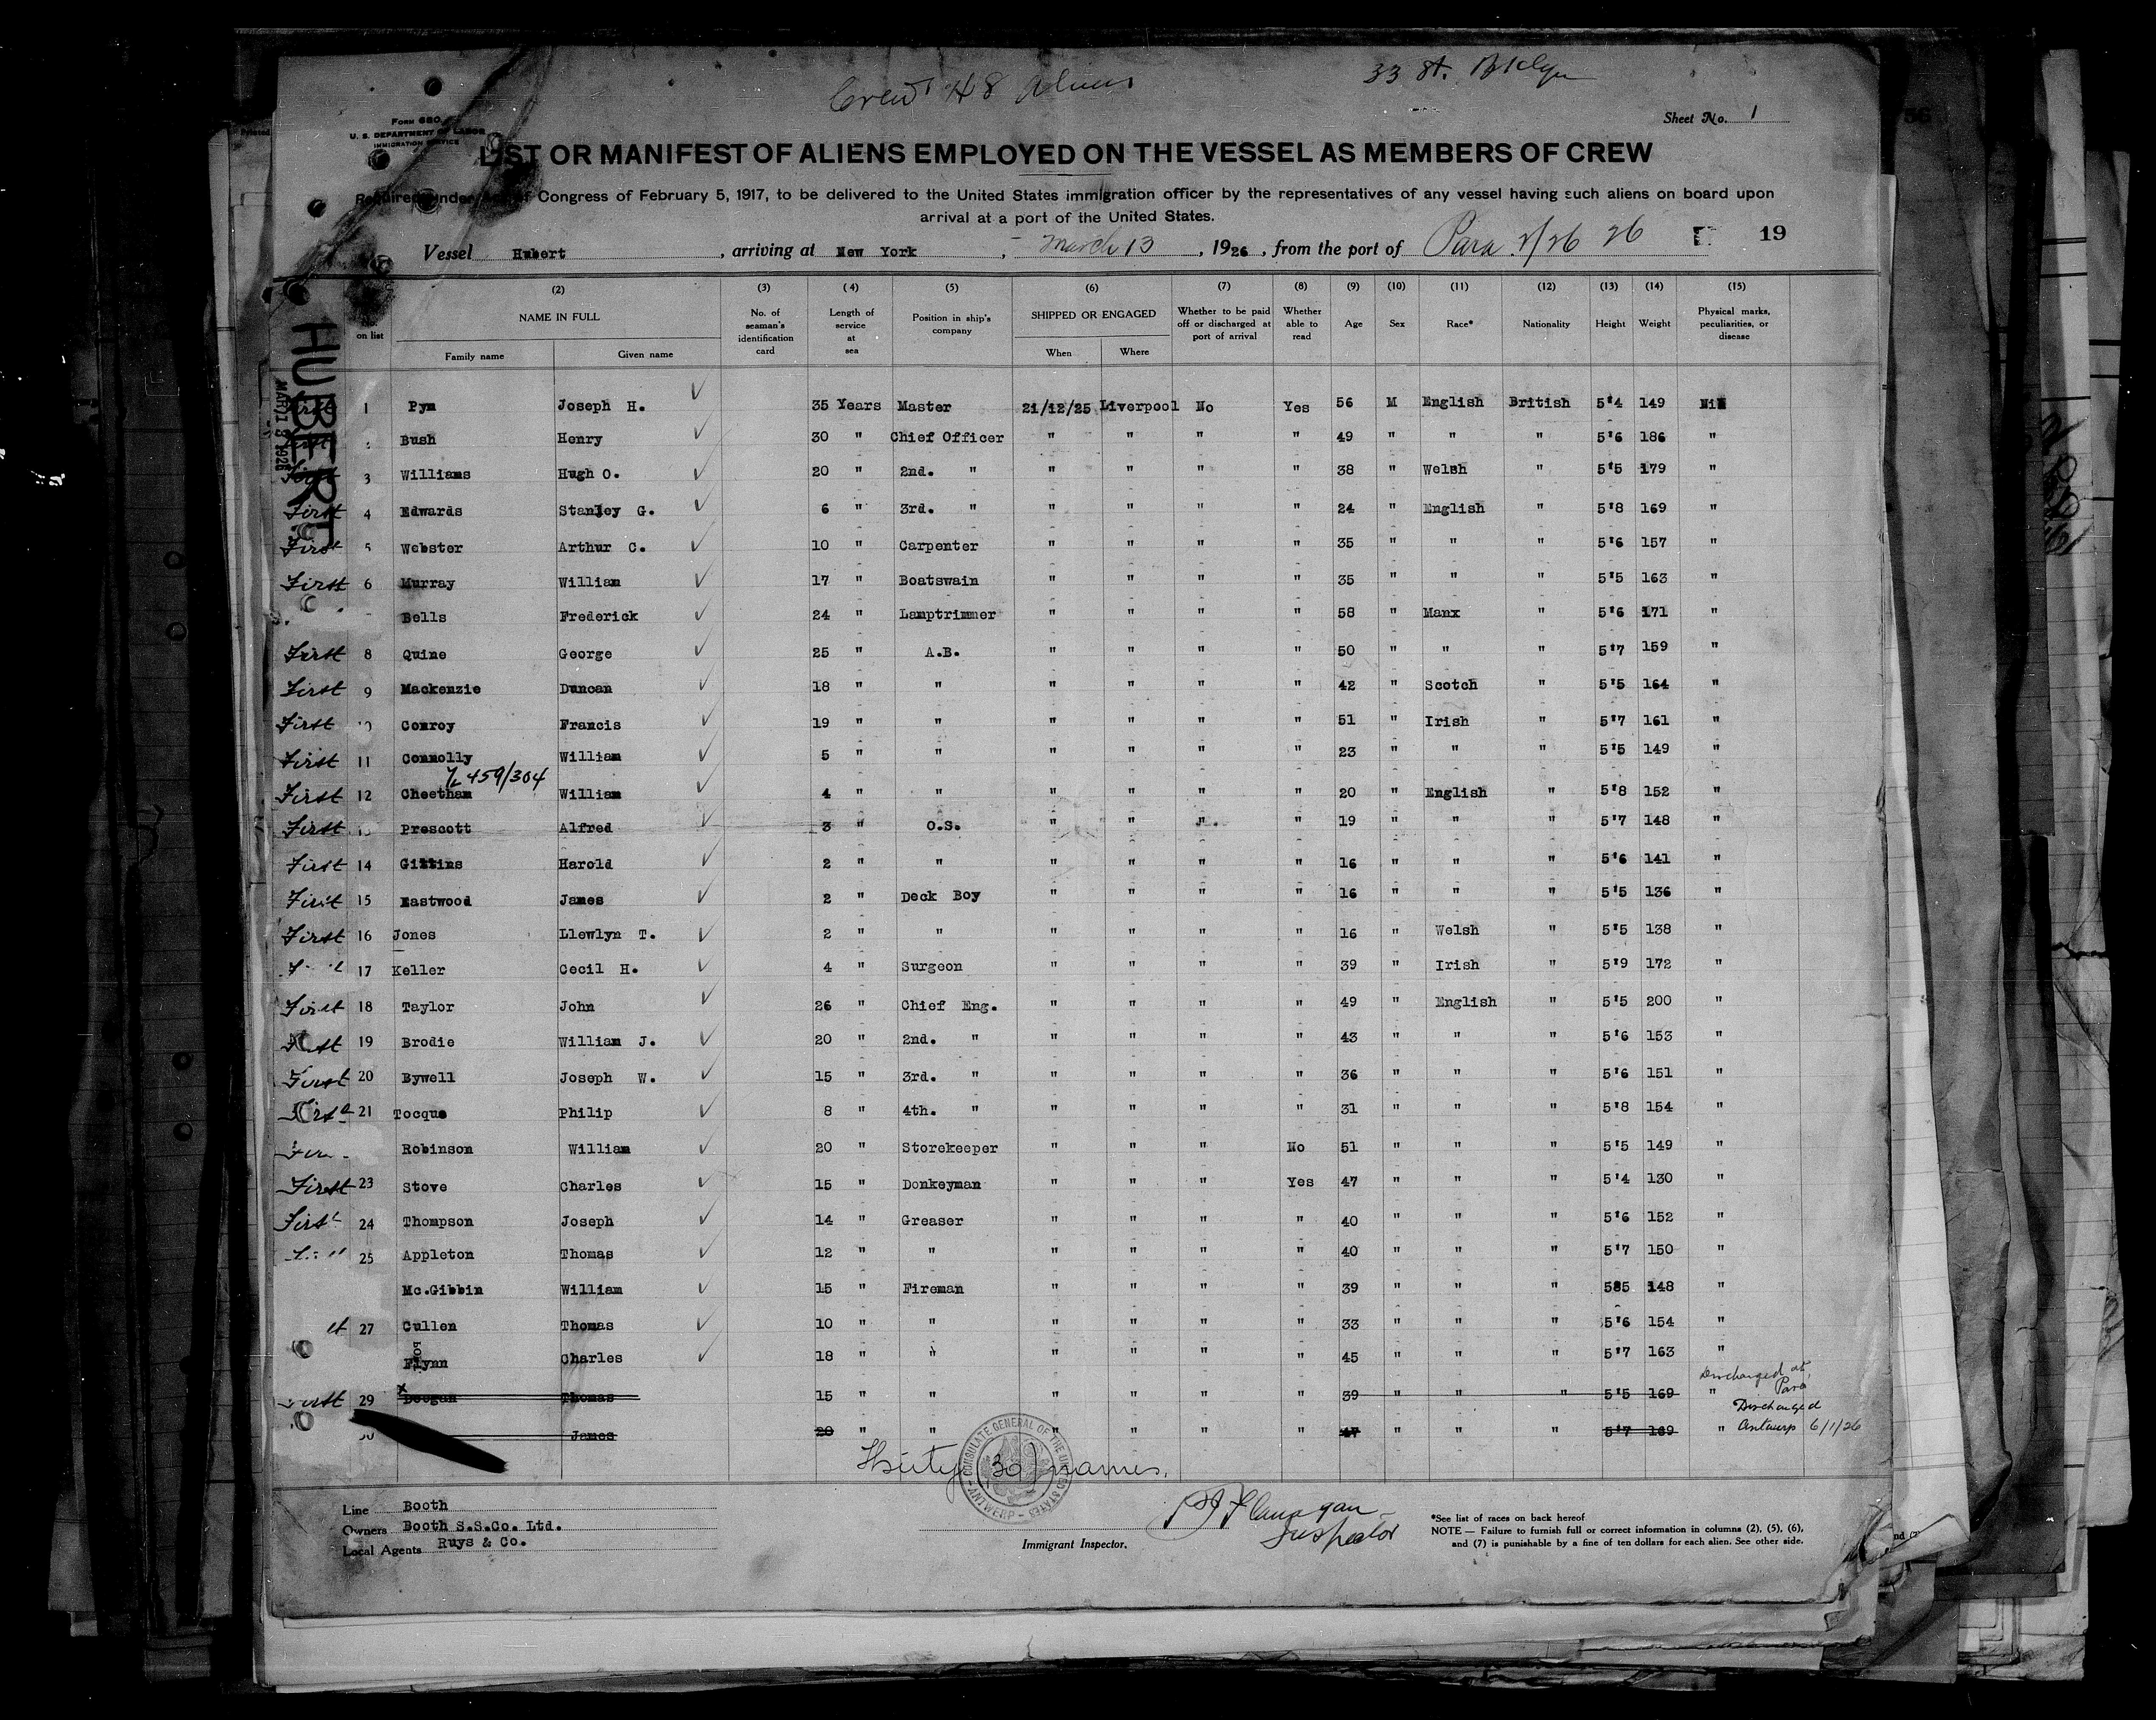 Crew 48 Aliens
33 St. Bklyn
FORM 680
U. S. DEPARTMENT OF LABOR
IMMIGRATION SERVICE
Sheet No. 1
LIST OR MANIFEST OF ALIENS EMPLOYED ON THE VESSEL AS MEMBERS OF CREW
Required under Act of Congress of February 5, 1917, to be delivered to the United States immigration officer by the representatives of any vessel having such aliens on board upon
arrival at a port of the United States.
Vessel Hubert, arriving at New York, March 13, 1926, from the port of Para 2/26 26 19
HUBERT
MAR 13 1926
(2) (3) (4) (5) (6) (7) (8) (9) (10) (11) (12) (13) (14) (15)
No. on list NAME IN FULL Family name Given name No. of seaman's identification card Length of service at sea Position in ship's company SHIPPED OR ENGAGED When Where Whether to be paid off or discharged at port of arrival Whether able to read Age Sex Race* Nationality Height Weight Physical marks, peculiarities, or disease
First 1 Pym Joseph H. ✓ 35 Years Master 21/12/25 Liverpool No Yes 56 M English British 5'4 149 Nil
Bush Henry ✓ 30 " Chief Officer " " " " 49 " " " 5'6 186 "
First 3 Williams Hugh O. ✓ 20 " 2nd. " " " " " 38 " Welsh " 5'5 179 "
First 4 Edwards Stanley G. ✓ 6 " 3rd. " " " " " 24 " English " 5'8 169 "
First 5 Webster Arthur C. ✓ 10 " Carpenter " " " " 35 " " " 5'6 157 "
First 6 Murray William ✓ 17 " Boatswain " " " " 35 " " " 5'5 163 "
Bells Frederick ✓ 24 " Lamptrimmer " " " " 58 " Manx " 5'6 171 "
First 8 Quine George ✓ 25 " A.B. " " " " 50 " " " 5'7 159 "
First 9 Mackenzie Duncan ✓ 18 " " " " " " 42 " Scotch " 5'5 164 "
First 10 Conroy Francis ✓ 19 " " " " " " 51 " Irish " 5'7 161 "
First 11 Connolly William ✓ 5 " " " " " " 23 " " " 5'5 149 "
459/304
First 12 Cheetham William ✓ 4 " " " " " " 20 " English " 5'8 152 "
First 13 Prescott Alfred ✓ 3 " O.S. " " " " 19 " " " 5'7 148 "
First 14 Gittins Harold ✓ 2 " " " " " " 16 " " " 5'6 141 "
First 15 Eastwood James ✓ 2 " Deck Boy " " " " 16 " " " 5'5 136 "
First 16 Jones Llewlyn T. ✓ 2 " " " " " " 16 " Welsh " 5'5 138 "
17 Keller Cecil H. ✓ 4 " Surgeon " " " " 39 " Irish " 5'9 172 "
First 18 Taylor John ✓ 26 " Chief Eng. " " " " 49 " English " 5'5 200 "
First 19 Brodie William J. ✓ 20 " 2nd. " " " " " 43 " " " 5'6 153 "
First 20 Bywell Joseph W. ✓ 15 " 3rd. " " " " " 36 " " " 5'6 151 "
First 21 Tocque Philip ✓ 8 " 4th. " " " " " 31 " " " 5'8 154 "
Robinson William ✓ 20 " Storekeeper " " " No 51 " " " 5'5 149 "
First 23 Stove Charles ✓ 15 " Donkeyman " " " Yes 47 " " " 5'4 130 "
First 24 Thompson Joseph ✓ 14 " Greaser " " " " 40 " " " 5'6 152 "
25 Appleton Thomas ✓ 12 " " " " " " 40 " " " 5'7 150 "
Mc.Gibbin William ✓ 15 " Fireman " " " " 39 " " " 585 148 "
27 Cullen Thomas ✓ 10 " " " " " " 33 " " " 5'6 154 "
Flynn Charles ✓ 18 " " " " " " 45 " " " 5'7 163 "
Discharged at Para
First 29 x Deegan Thomas 15 " " " " " " 39 " " " 5'5 169 "
Discharged
30 James 20 " " " " " " 47 " " " 5'7 169 " Antwerp 6/1/26
Thirty (30) names.
CONSULATE GENERAL OF THE UNITED STATES ANTWERP
Line Booth
Owners Booth S.S.Co. Ltd.
Local Agents Ruys & Co.
Flanagan
Inspector
Immigrant Inspector.
*See list of races on back hereof
NOTE — Failure to furnish full or correct information in columns (2), (5), (6),
and (7) is punishable by a fine of ten dollars for each alien. See other side.